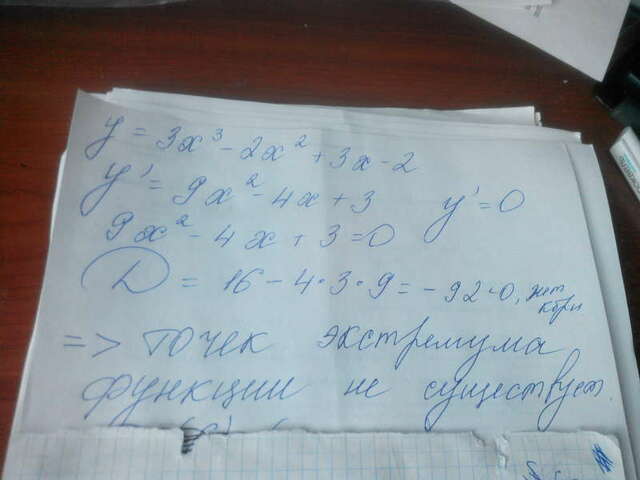 y = 3x³ - 2x² + 3x - 2
y' = 9x² - 4x + 3 y' = 0
9x² - 4x + 3 = 0
D = 16 - 4·3·9 = -92 < 0, нет
=> точек экстремума
функции не существует.